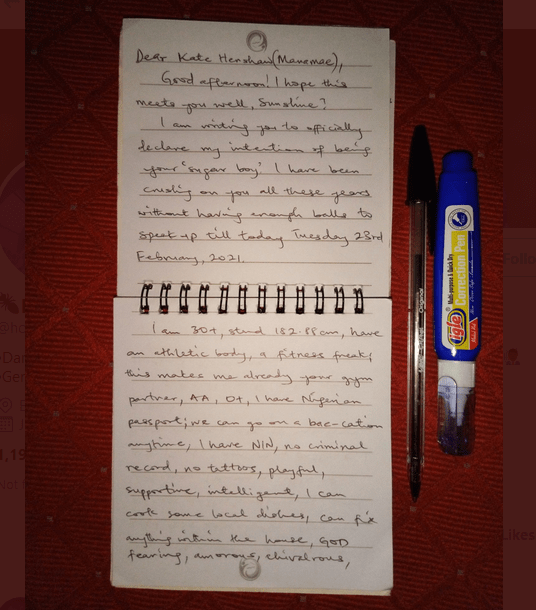 Dear Kate Henshaw (Manamae),
Good afternoon! I hope this
meets you well, Sunshine?
I am writing you to officially
declare my intention of being
your 'sugar boy'. I have been
crushing on you all these years
without having enough balls to
speak up till today Tuesday 23rd
February, 2021.
I am 30+, stand 182.88cm, have
an athletic body, a fitness freak,
this makes me already your gym
partner, AA, O+, I have Nigerian
passport; we can go on a bae-cation
anytime, I have NIN, no criminal
record, no tattoos, playful,
supportive, intelligent, I can
cook some local dishes, can fix
anything within the house, GOD
fearing, amorous, chivalrous,
Multi-purpose & Quick Dry
Correction Pen
igle
Likes